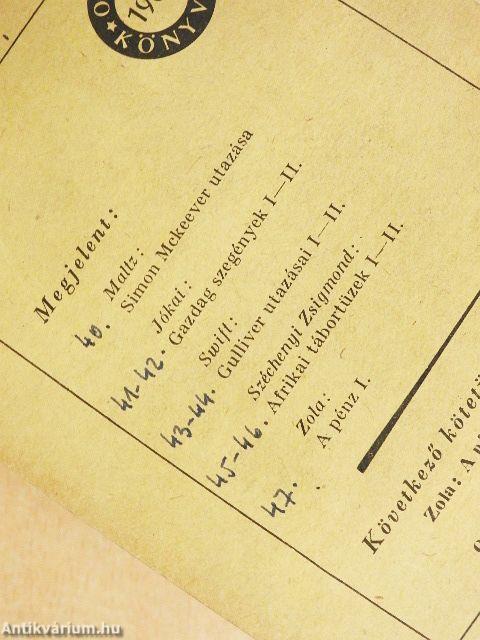 KÖNYV
Megjelent:
40. Maltz:
Simon Mckeever utazása
Jókai:
41-42. Gazdag szegények I—II.
Swift:
43-44. Gulliver utazásai I—II.
Széchenyi Zsigmond:
45-46. Afrikai tábortüzek I—II.
Zola:
47. A pénz I.
Következő kötetü
Zola: A p
Antikvárium.hu